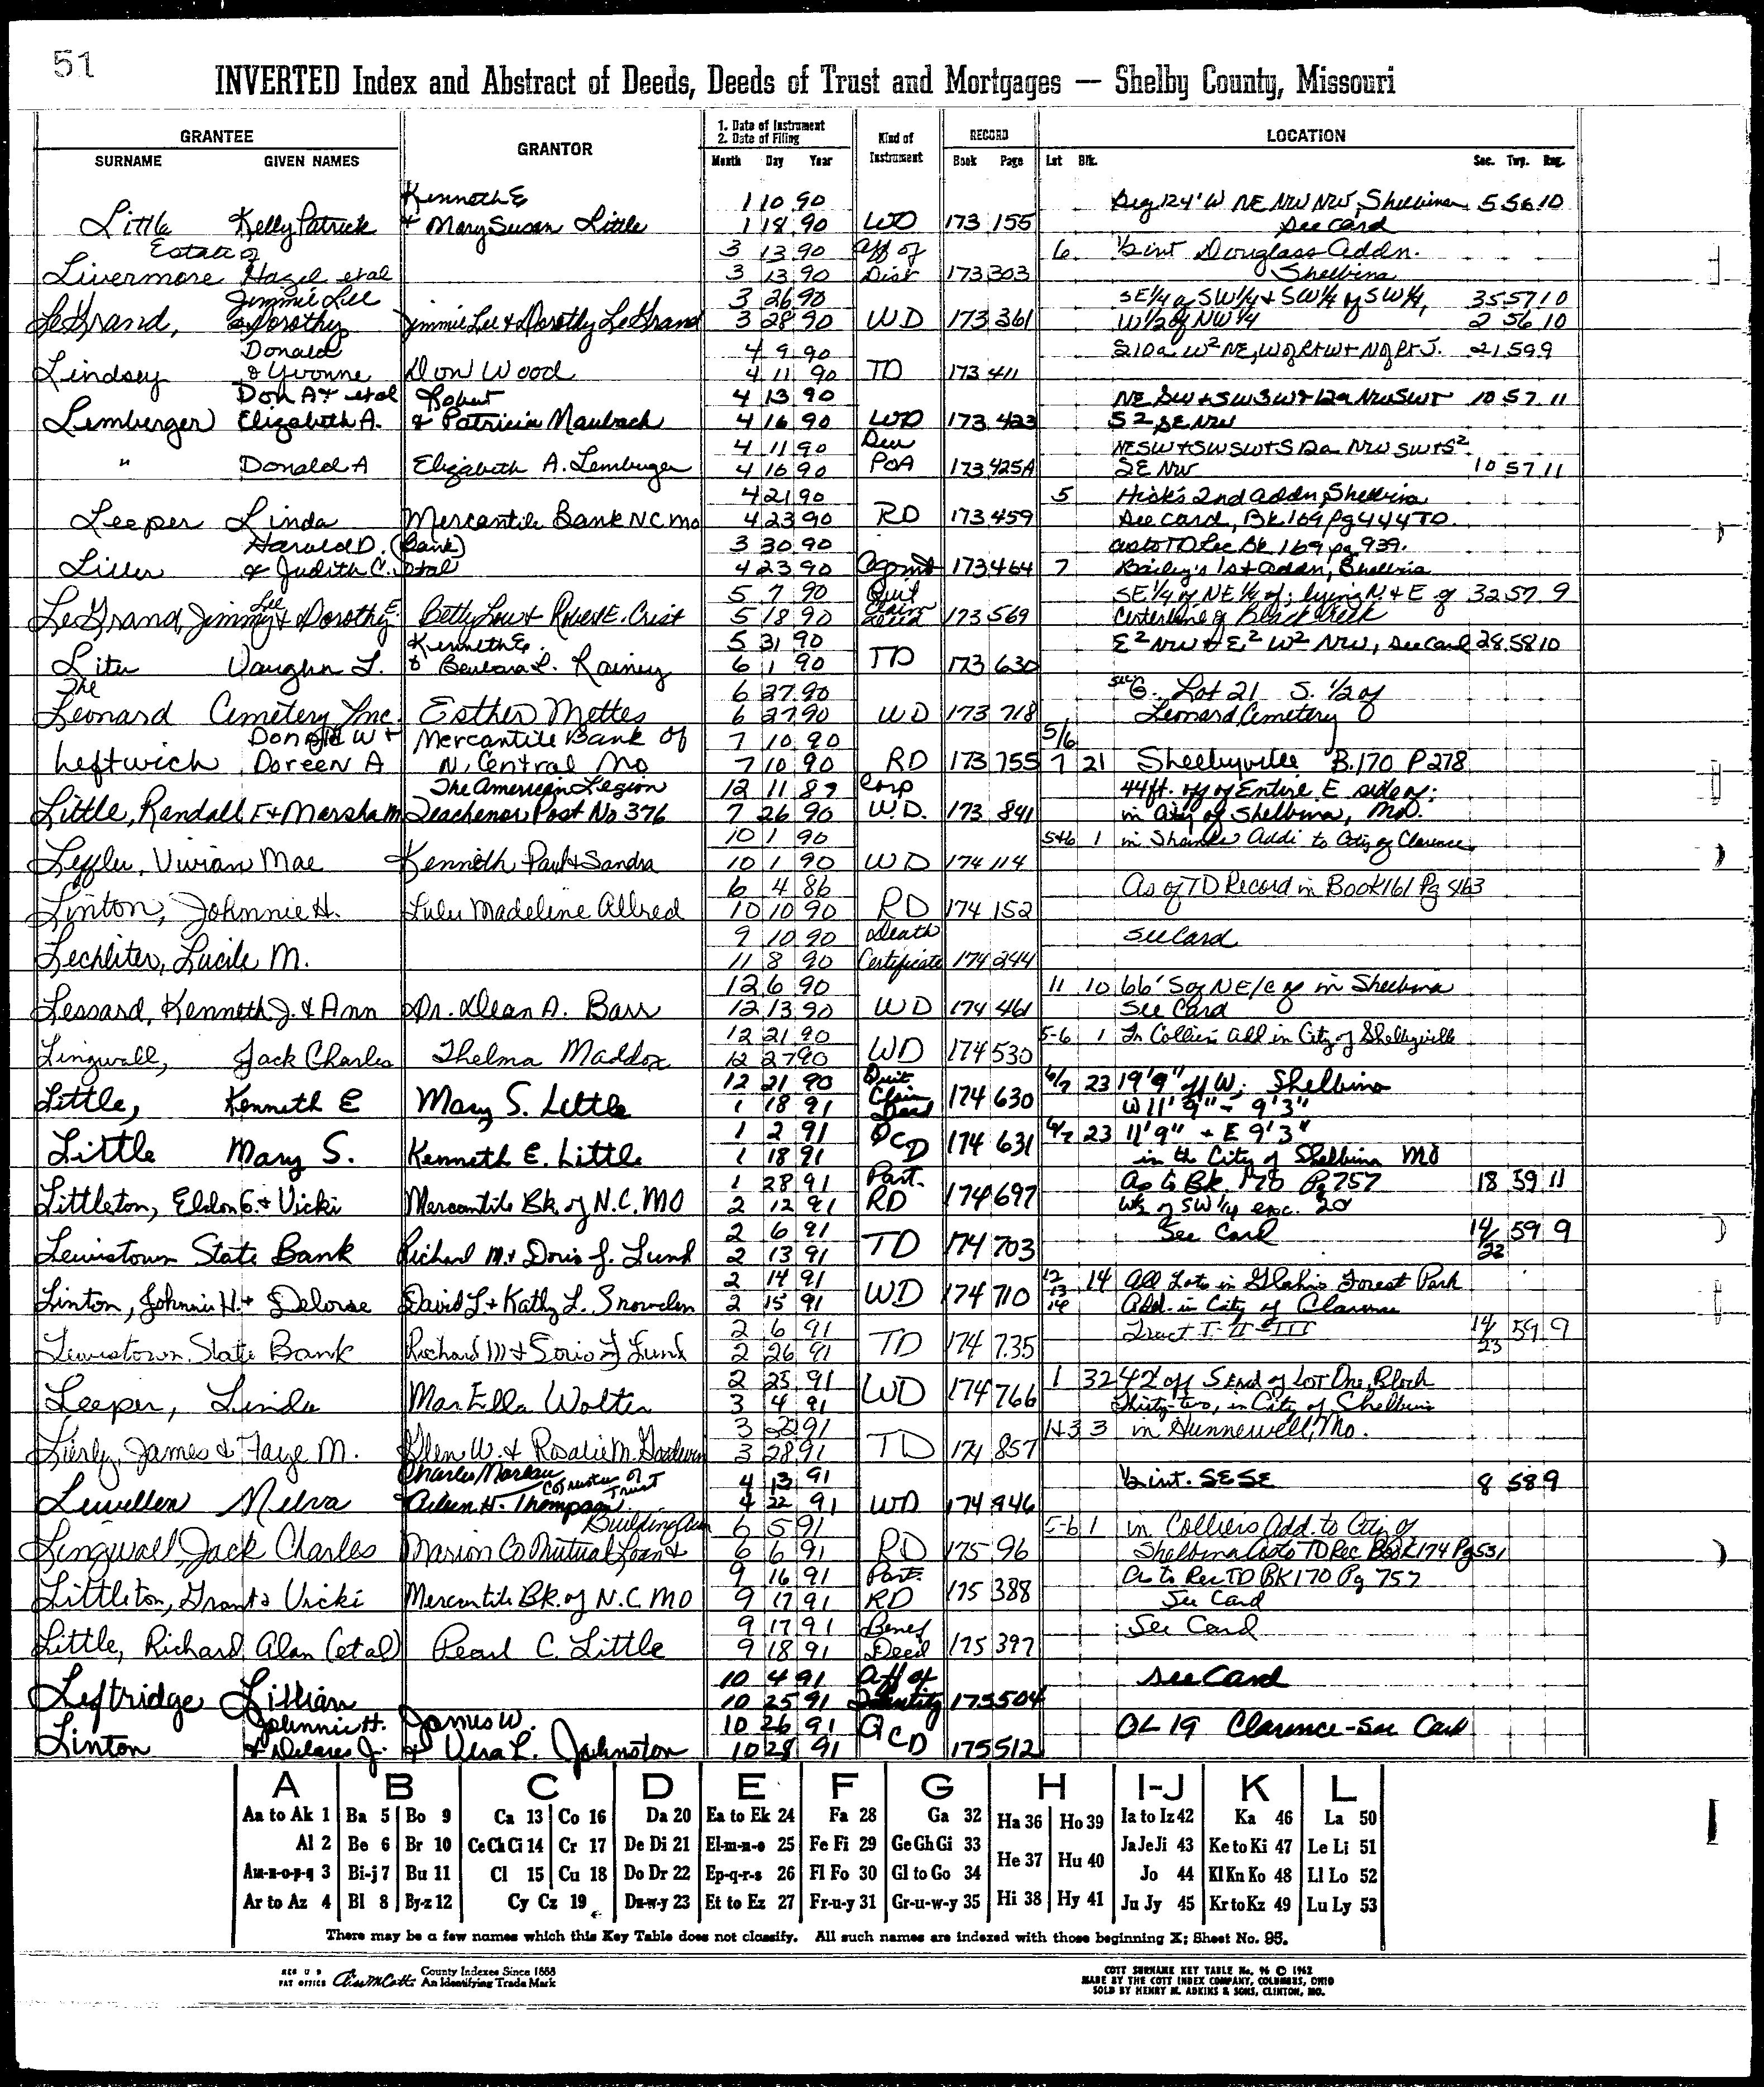 51
INVERTED Index and Abstract of Deeds, Deeds of Trust and Mortgages — Shelby County, Missouri
GRANTEE
SURNAME GIVEN NAMES
GRANTOR
1. Date of Instrument
2. Date of Filing
Month Day Year
Kind of Instrument
RECORD
Book Page
Lot Blk.
LOCATION
Sec. Twp. Rng.
Kenneth E 1 10 90 Beg 124' W NE NW NW, Shelbina 5 56 10
Little Kelly Patrick & Mary Susan Little 1 18 90 WD 173 155 See Card
Estate of 3 13 90 Aff of 6 1/2 int Douglass Addn.
Livermore Hazel etal 3 13 90 Dist 173 303 Shelbina
Jimmie Lee 3 26 90 SE 1/4 of SW 1/4 & SW 1/4 of SW 1/4, 35 57 10
LeGrand, & Dorothy Jimmie Lee & Dorothy LeGrand 3 28 90 WD 173 361 W 1/2 of NW 1/4 2 56 10
Donald 4 9 90 S10a W2 NE, W of Rt W & N of Rt J. 21 59 9
Lindsey & Yvonne Don Wood 4 11 90 TD 173 411
Don A & etal Robert 4 13 90 NE SW & SW SW & 12a NW SW & 10 57 11
Lemberger Elizabeth A. & Patricia Maubach 4 16 90 WD 173 423 S2 SE NW
4 11 90 NE SW & SW SW & S 12a NW SW & S2
" Donald A Elizabeth A. Lemberger 4 16 90 POA 173 425A SE NW 10 57 11
4 21 90 5 Hick's 2nd Addn, Shelbina
Leeper Linda Mercantile Bank NC Mo 4 23 90 RD 173 459 See Card, Bk 169 Pg 444 TD.
Harold D. (Bank) 3 30 90 as to TD Rec Bk 169 pg 939.
& Judith C. etal 4 23 90 Agmt 173 464 7 Bailey's 1st Addn, Shelbina
Lee 5 7 90 Quit SE 1/4 of NE 1/4 of; lying N & E of 32 57 9
LeGrand, Jimmy & Dorothy E. Betty Lou & Robert E. Crist 5 18 90 Claim Deed 173 569 Centerline of Black Creek
Kenneth E. 5 31 90 E2 NW & E2 W2 NW, See Card 28 58 10
Liter Vaughn L. & Barbara L. Rainey 6 1 90 TD 173 630
The 6 27 90 Sec G. Lot 21 S. 1/2 of
Leonard Cemetery Inc. Esther Mettes 6 27 90 WD 173 718 Leonard Cemetery
Donald W & Mercantile Bank of 7 10 90 5/6
Leftwich Doreen A N. Central Mo 7 10 90 RD 173 755 7 21 Shelbyville B.170 P278
The American Legion 12 11 87 Corp 44 ft. off of Entire E side of;
Little, Randall F & Marsha M Deachenor Post No 376 7 26 90 W.D. 173 841 in City of Shelbina, Mo.
10 1 90 5&6 1 in Addi to City of Clarence
Leffler, Vivian Mae Kenneth Paul & Sandra 10 1 90 WD 174 114
6 4 86 As of TD Record in Book 161 Pg 463
Linton, Johnnie H. Lulu Madeline Allred 10 10 90 RD 174 152
9 10 90 Death See Card
Lechliter, Lucile M. 11 8 90 Certificate 174 244
12 6 90 11 10 66' S of NE/C of in Shelbina
Lessard, Kenneth J. & Ann Dr. Dean A. Barr 12 13 90 WD 174 461 See Card
12 21 90 5-6 1 In Colliers add in City of Shelbyville
Lingwall, Jack Charles Thelma Maddox 12 27 90 WD 174 530
12 21 90 Quit 6/7 23 19'9" off W; Shelbina
Little, Kenneth E Mary S. Little 1 18 91 Claim Deed 174 630 W 11'9" - 9'3"
1 2 91 6/7 23 11'9" + E 9'3"
Little Mary S. Kenneth E. Little 1 18 91 QCD 174 631 in the City of Shelbina MO
1 28 91 Part. As to Bk. 170 Pg 757 18 59 11
Littleton, Eldon G. & Vicki Mercantile Bk. of N.C. MO 2 12 91 RD 174 697 W1/2 of SW 1/4 exc. 20
2 6 91 See Card 14/23 59 9
Lewistown State Bank Richard M. & Doris J. Lund 2 13 91 TD 174 703
2 14 91 12 13 14 14 All Lots in Forest Park
Linton, Johnnie H. & Delores David L. & Kathy L. Snowden 2 15 91 WD 174 710 Add. in City of Clarence
2 6 91 Tract I-II-III 14/23 59 9
Lewistown State Bank Richard M & Doris J Lund 2 26 91 TD 174 735
2 25 91 1 32 42' off S End of Lot One, Block
Leeper, Linda Mar Ella Wolter 3 4 91 WD 174 766 Thirty-two, in City of Shelbina
3 91 3 in Hunnewell, Mo.
Lierly, James & Faye M. Glen W. & Rosalie M. 3 28 91 TD 174 857
Charles Moreau Cotrustee of Trust 4 13 91 1/2 int. SE SE 8 58 9
Lewellen Melva Aileen H. Thompson 4 22 91 WD 174 946
Building Assn 6 5 91 5-6 1 in Colliers Add. to City of
Lingwall, Jack Charles Marion Co Mutual Loan & 6 6 91 RD 175 96 Shelbina as to TD Rec Book 174 Pg 531
9 16 91 Part. As to Rec TD BK 170 Pg 757
Littleton, Grant & Vicki Mercantile Bk. of N.C. MO 9 17 91 RD 175 388 See Card
9 17 91 Benef See Card
Little, Richard Alan (etal) Pearl C. Little 9 18 91 Deed 175 397
10 4 91 Aff of See Card
Leftridge Lillian 10 25 91 Identity 175 504
Johnnie H. James W. 10 26 91 OL 19 Clarence-See Card
Linton & Delores J. & Vera L. Johnston 10 28 91 QCD 175 512
A B C D E F G H I-J K L
Aa to Ak 1 Ba 5 Bo 9 Ca 13 Co 16 Da 20 Ea to Ek 24 Fa 28 Ga 32 Ha 36 Ho 39 Ia to Iz 42 Ka 46 La 50
Al 2 Be 6 Br 10 Ce Ch Ci 14 Cr 17 De Di 21 El-m-n-o 25 Fe Fi 29 Ge Gh Gi 33 He 37 Hu 40 Ja Je Ji 43 Ke to Ki 47 Le Li 51
Am-n-o-p-q 3 Bi-j 7 Bu 11 Cl 15 Cu 18 Do Dr 22 Ep-q-r-s 26 Fl Fo 30 Gl to Go 34 Jo 44 Kl Kn Ko 48 Ll Lo 52
Ar to Az 4 Bl 8 By-z 12 Cy Cz 19 Du-w-y 23 Et to Ez 27 Fr-u-y 31 Gr-u-w-y 35 Hi 38 Hy 41 Ju Jy 45 Kr to Kz 49 Lu Ly 53
There may be a few names which this Key Table does not classify. All such names are indexed with those beginning X; Sheet No. 95.
REG U S PAT OFFICE County Indexes Since 1888
An Identifying Trade Mark
COTT SURNAME KEY TABLE No. 96 © 1962
MADE BY THE COTT INDEX COMPANY, COLUMBUS, OHIO
SOLD BY HENRY M. ADKINS & SONS, CLINTON, MO.